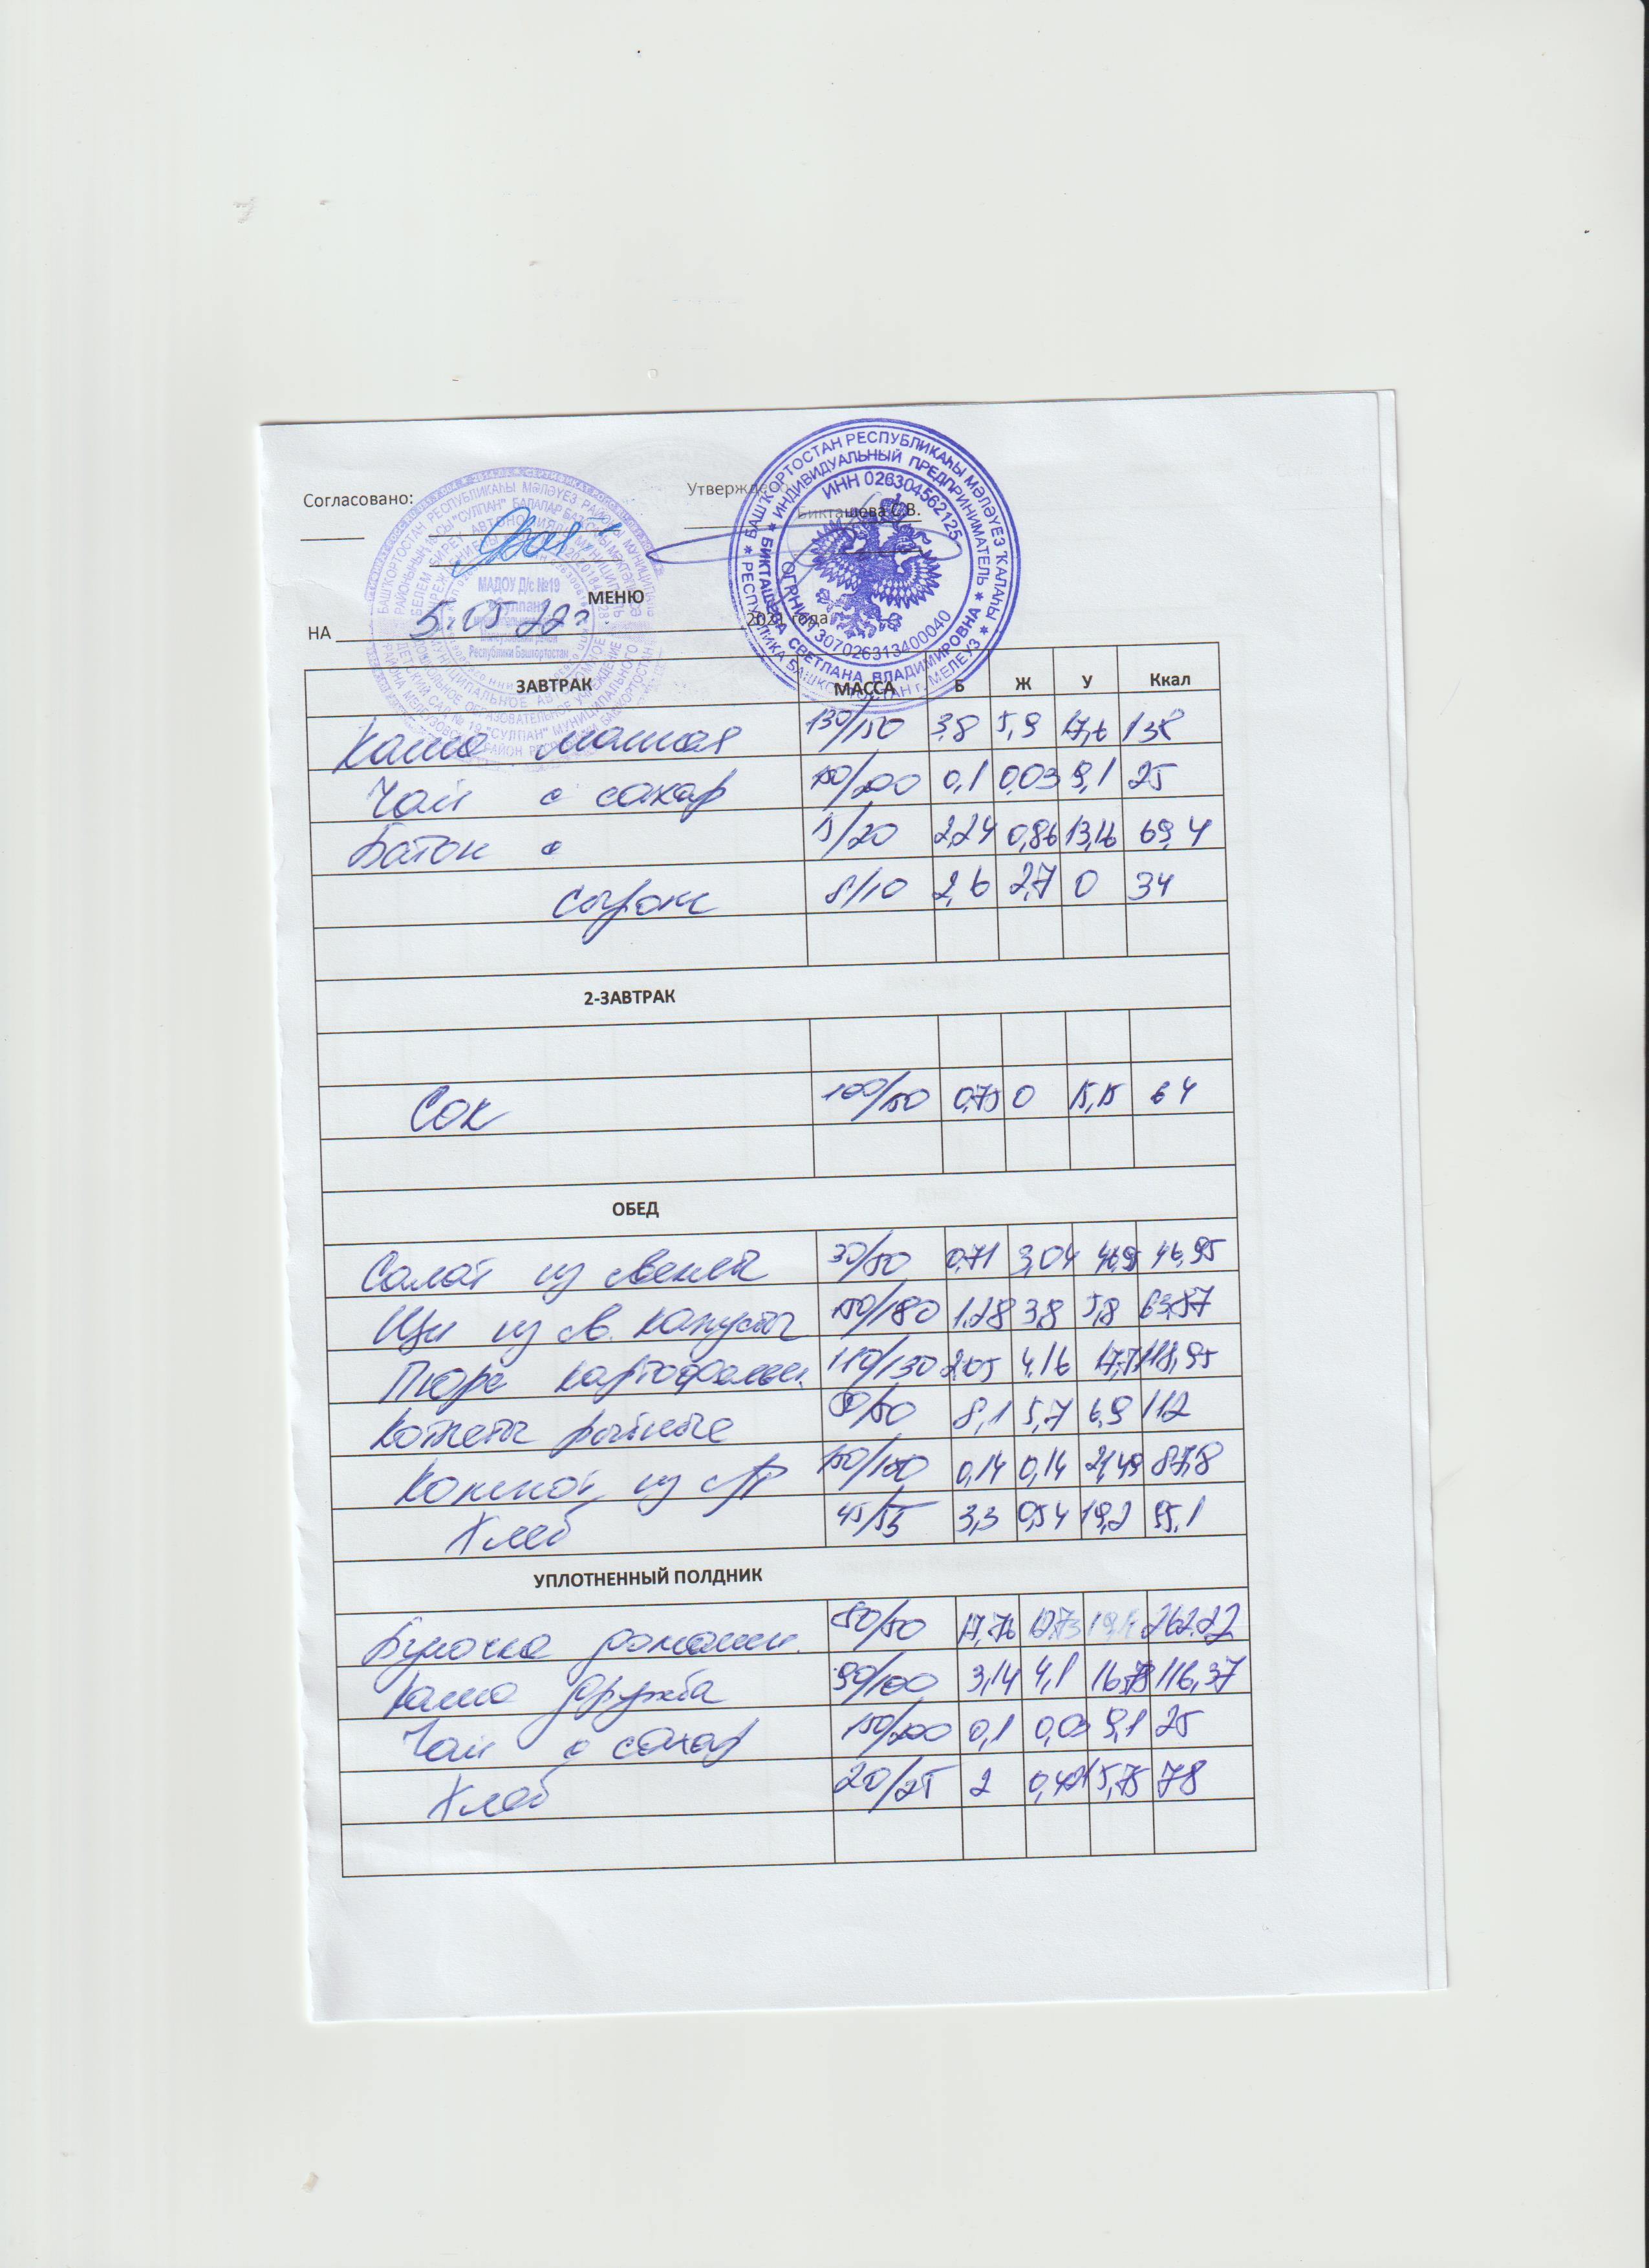 Согласовано:
Утвержде
Бикташова С.В.
МЕНЮ
НА 5.05 22г 2021 года
ЗАВТРАК МАССА Б Ж У Ккал
Каша манная 130/150 3,8 5,9 17,6 138
Чай с сахар 150/200 0,1 0,03 9,1 25
Батон с 15/20 2,24 0,86 13,16 69,4
сыром 8/10 2,6 2,7 0 34
2-ЗАВТРАК
Сок 100/150 0,75 0 15,15 64
ОБЕД
Салат из свеклы 30/50 0,71 3,04 46,95
Щи из св. капусты 150/180 1,28 3,8 5,8 63,87
Пюре картофельн. 110/130 2,05 4,16 118,95
Котлеты рыбные 50 8,1 5,7 6,9 112
Компот из 150/180 0,14 0,14 21,49 87,8
Хлеб 45/55 3,3 0,54 19,2 95,1
УПЛОТНЕННЫЙ ПОЛДНИК
Булочка домашн. 50/50 17,76 262.22
Каша дружба 90/100 3,14 4,1 16,78 116,37
Чай с сахар 150/200 0,1 0,03 9,1 25
Хлеб 20/25 2 0,42 15,75 78
БАШҠОРТОСТАН РЕСПУБЛИКАҺЫ МӘЛӘҮЕЗ ҠАЛАҺЫ
ИНДИВИДУАЛЬНЫЙ ПРЕДПРИНИМАТЕЛЬ
ИНН 026304562125
БИКТАШЕВА СВЕТЛАНА ВЛАДИМИРОВНА
ОГРНИП 307026313400040
РЕСПУБЛИКА БАШКОРТОСТАН г. МЕЛЕУЗ
МАДОУ Д/с №19
Республики Башкортостан